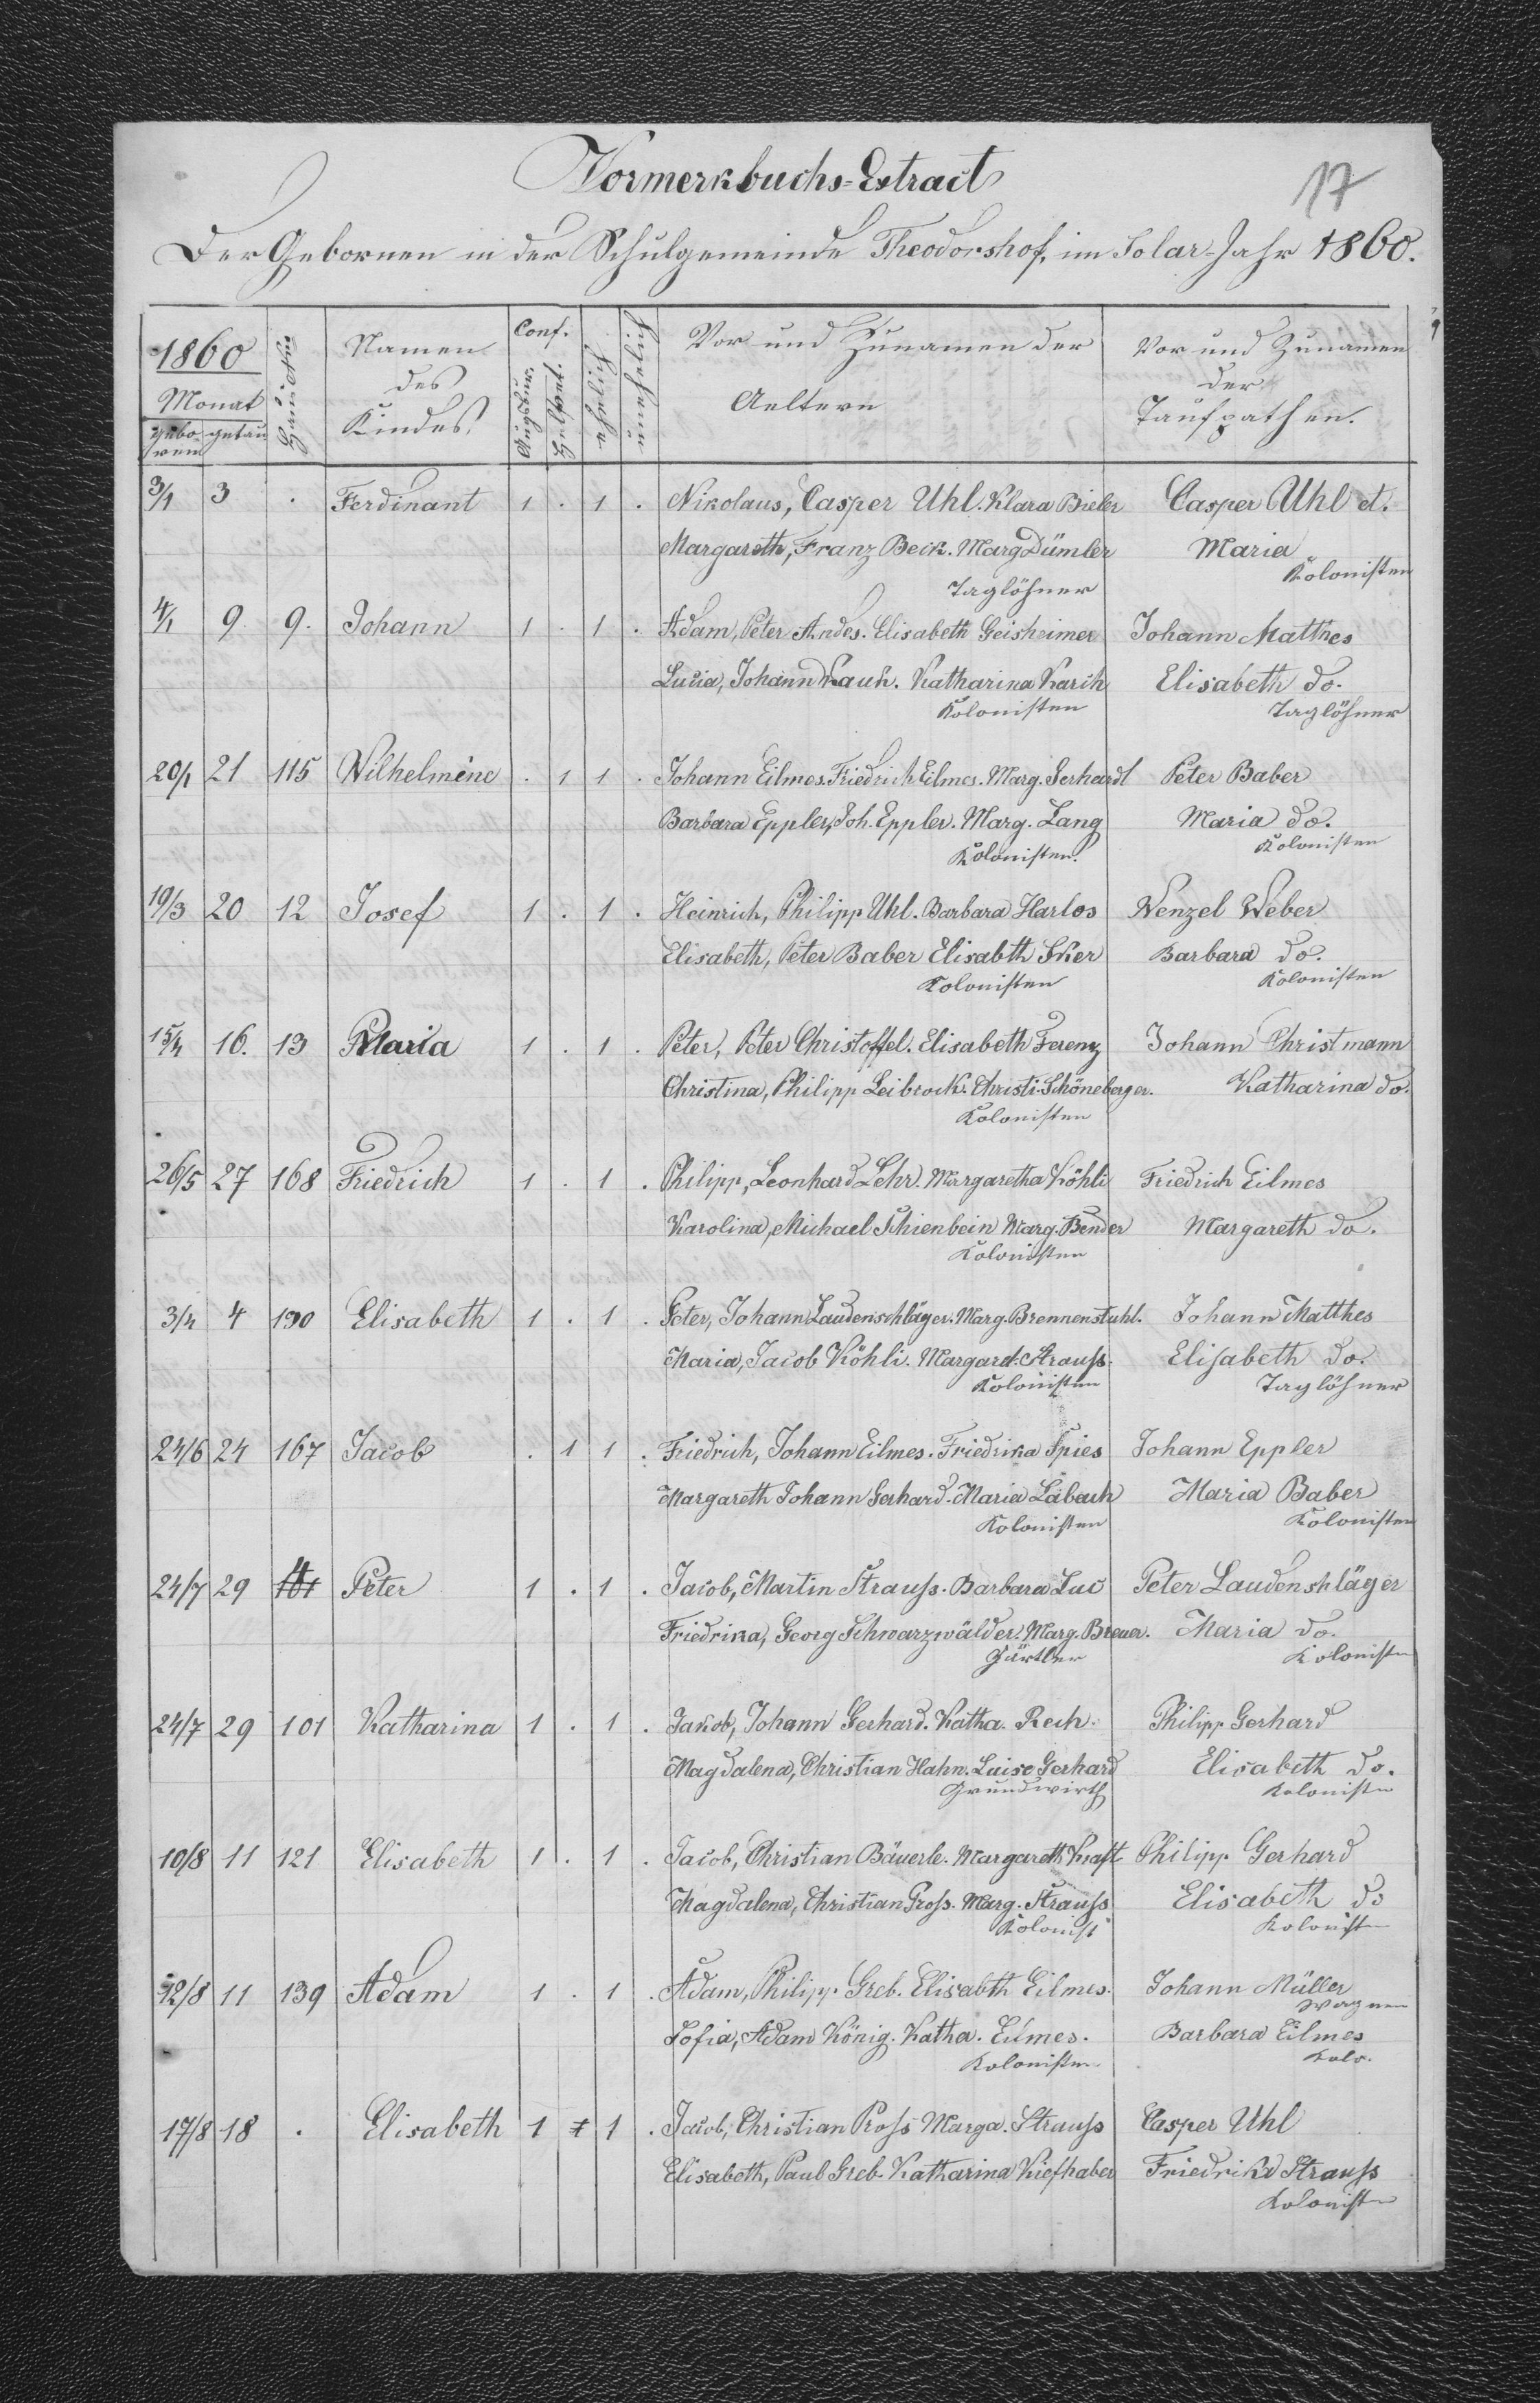 Vormerkbuchs=Extract
17
Der Gebornen in der Schulgemeinde Theodorshof, im Solar-Jahr 1860.
1860 Monat gebo- ren getau Haus No Namen des Kindes Conf. Augsbur. Helvet. ehelich unehelich Vor und Zunamen der Aeltern Vor und Zunamen der Taufpathen.
3/1 3 . Ferdinant 1 . 1 . Nikolaus, Casper Uhl. Klara Bieler Casper Uhl et.
Margareth, Franz Beck. Marg Dümler Maria
Taglöhner Kolonisten
4/1 9. 9. Johann 1 . 1 . Adam, Peter Andes. Elisabeth Geisheimer Johann Matthes
Lucia, Johann Kauk. Katharina Karch Elisabeth do.
Kolonisten Taglöhner
20/1 21 115 Wilhelmine . 1 1 . Johann Eilmes. Friedrich Eilmes. Marg. Gerhardt Peter Baber
Barbara Eppler, Joh. Eppler. Marg. Lang Maria do.
Kolonisten. Kolonisten
19/3 20 12 Josef 1 . 1 . Heinrich, Philipp Uhl. Barbara Harlos Wenzel Weber
Elisabeth, Peter Baber Elisabth Sker Barbara do.
Kolonisten Kolonisten
15/4 16. 13 Maria 1 . 1 . Peter, Peter Christoffel. Elisabeth Ferenz Johann Christmann
Christina, Philipp Leibrock. Christi. Schöneberger. Katharina do.
Kolonisten
26/5 27 168 Friedrich 1 . 1 . Philipp, Leonhard Lehr. Margaretha Köhli Friedrich Eilmes
Karolina, Michael Schienbein Marg. Bender Margareth do.
Kolonisten
3/4 4 190 Elisabeth 1 . 1 . Peter, Johann Laudenschläger. Marg. Brennenstuhl. Johann Matthes
Maria, Jacob Köhli. Margaret. Strauss. Elisabeth do.
Kolonisten Taglöhner
24/6 24 167 Jacob . 1 1 . Friedrich, Johann Eilmes. Friedrika Spies Johann Eppler
Margareth Johann Gerhard. Maria Labach Maria Baber
Kolonisten Kolonisten
24/7 29 4 Peter 1 . 1 . Jacob, Martin Strauss. Barbara Luc Peter Laudenschläger
Friedrika, Georg Schwarzwälder. Marg. Breuer. Maria do.
Gärtler Kolonisten
24/7 29 101 Katharina 1 . 1 . Jakob, Johann Gerhard. Katha. Rech. Philipp Gerhard
Magdalena, Christian Hahn. Luise Gerhard Elisabeth do.
Grundwirth Kolonisten
10/8 11 121 Elisabeth 1 . 1 . Jacob, Christian Bäuerle. Margareth Kraft Philipp Gerhard
Magdalena, Christian Pross. Marg. Strauss Elisabeth do
Kolonist Kolonisten
12/8 11 139 Adam 1 . 1 . Adam, Philipp Greb. Elisabth Eilmes. Johann Müller
Wagner
Sofia, Adam König. Katha. Eilmes. Barbara Eilmes
Kolonisten Kolo.
17/8 18 . Elisabeth 1 1 . Jacob, Christian Pross Marga. Strauss Casper Uhl
Elisabeth, Paul Greb. Katharina Kiefhaber Friedrika Strauss
Kolonisten